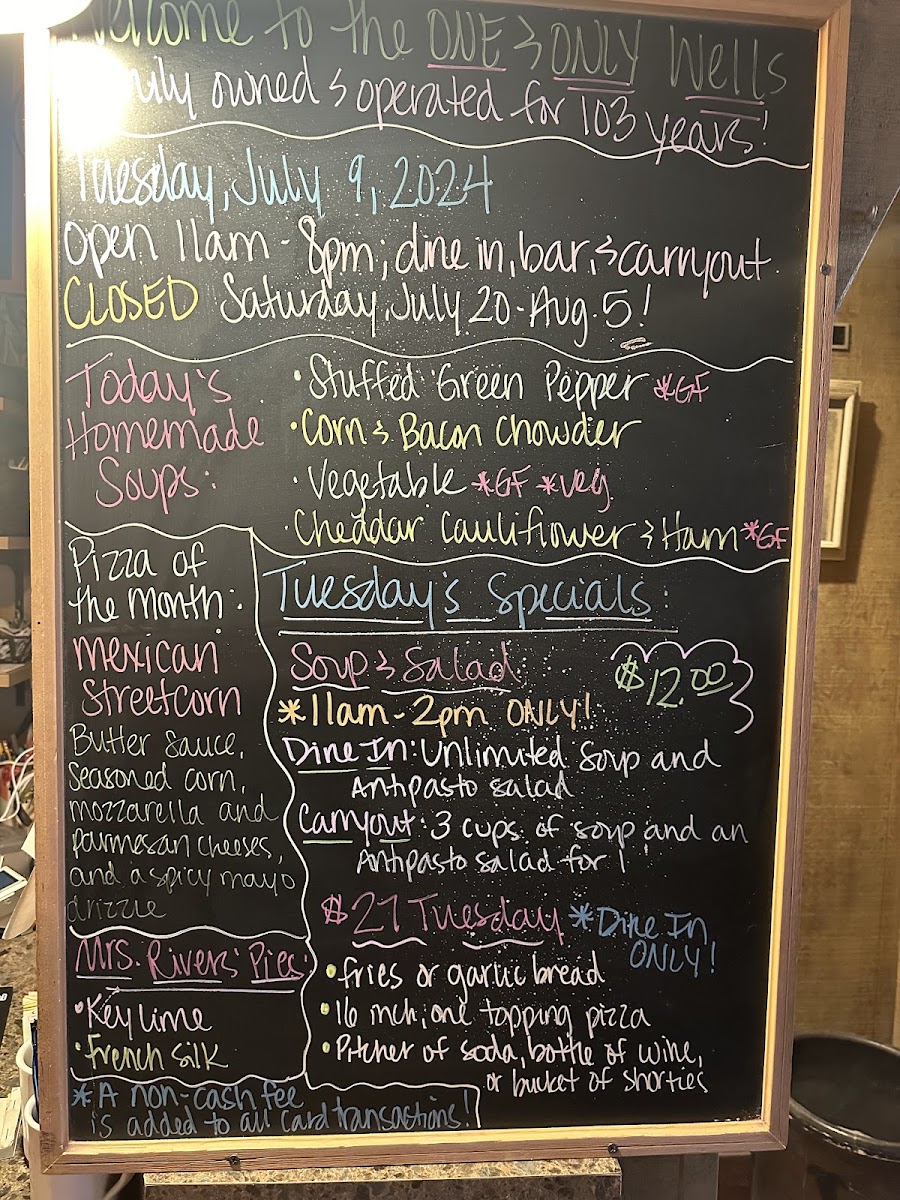 Welcome to the ONE & ONLY Wells
Family owned & operated for 103 years!
Tuesday, July 9, 2024
Open 11am - 8pm; dine in, bar, & carryout
CLOSED Saturday, July 20 - Aug. 5!
Today's
Homemade
Soups:
• Stuffed Green Pepper *GF
• Corn & Bacon Chowder
• Vegetable *GF *Veg
• Cheddar Cauliflower & Ham *GF
Pizza of
the Month:
Mexican
Streetcorn
Butter Sauce,
Seasoned corn,
mozzarella and
parmesan cheeses,
and a spicy mayo
drizzle
Mrs. Rivers' Pies:
• Key lime
• French Silk
Tuesday's Specials:
Soup & Salad $12.00
*11am - 2pm ONLY!
Dine In: Unlimited Soup and
Antipasto salad
Carryout: 3 cups of soup and an
Antipasto salad for 1
$27 Tuesday *Dine In
ONLY!
• fries or garlic bread
• 16 inch, one topping pizza
• Pitcher of soda, bottle of wine,
or bucket of shorties
*A non-cash fee
is added to all card transactions!